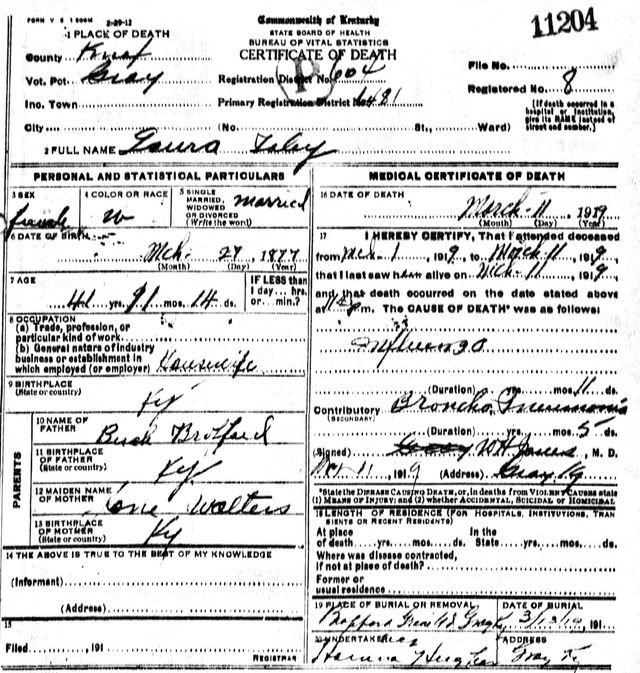 FORM V S 1 500M 2-29-12
Commonwealth of Kentucky
STATE BOARD OF HEALTH
BUREAU OF VITAL STATISTICS
CERTIFICATE OF DEATH
11204
1 PLACE OF DEATH
County Knox
Vot. Pct. Gray
Ino. Town
City (No. St., Ward)
Registration District No. 604
P
Primary Registration District No. 1481
File No.
Registered No. 8
[If death occurred in a hospital or institution, give its NAME instead of street and number.]
2 FULL NAME Laura
PERSONAL AND STATISTICAL PARTICULARS
3 SEX female
4 COLOR OR RACE W
5 SINGLE MARRIED, WIDOWED OR DIVORCED (Write the word) Married
6 DATE OF BIRTH Mch. 27 1877
(Month) (Day) (Year)
7 AGE 41 yrs. mos. 14 ds.
IF LESS than 1 day... hrs. or min.?
8 OCCUPATION
(a) Trade, profession, or particular kind of work
(b) General nature of industry business or establishment in which employed (or employer) Housewife
9 BIRTHPLACE (State or country) Ky
PARENTS
10 NAME OF FATHER Buck
11 BIRTHPLACE OF FATHER (State or country) Ky
12 MAIDEN NAME OF MOTHER Walters
13 BIRTHPLACE OF MOTHER (State or country) Ky
14 THE ABOVE IS TRUE TO THE BEST OF MY KNOWLEDGE
(Informant)
(Address)
15
Filed , 191
REGISTRAR
MEDICAL CERTIFICATE OF DEATH
16 DATE OF DEATH March 11 1919
(Month) (Day) (Year)
17 I HEREBY CERTIFY, That I attended deceased
from Mch 1, 1919, to March 11, 1919,
that I last saw her alive on Mch 11, 1919,
and that death occurred on the date stated above
at m. The CAUSE OF DEATH* was as follows:
Influenza
(Duration) yrs. mos. 11 ds.
Contributory (SECONDARY) Broncho Pneumonia
(Duration) yrs. mos. 5 ds.
(Signed) W H Jones, M. D.
11, 1919 (Address) Gray Ky
*State the DISEASE CAUSING DEATH, or, in deaths from VIOLENT CAUSES state
(1) MEANS OF INJURY; and (2) whether ACCIDENTAL, SUICIDAL or HOMICIDAL
18 LENGTH OF RESIDENCE (FOR HOSPITALS, INSTITUTIONS, TRANSIENTS OR RECENT RESIDENTS)
At place of death yrs. mos. ds. In the State yrs. mos. ds.
Where was disease contracted, if not at place of death?
Former or usual residence
19 PLACE OF BURIAL OR REMOVAL
DATE OF BURIAL
3/13/19, 191
20 UNDERTAKER
Hughes
ADDRESS
Gray Ky